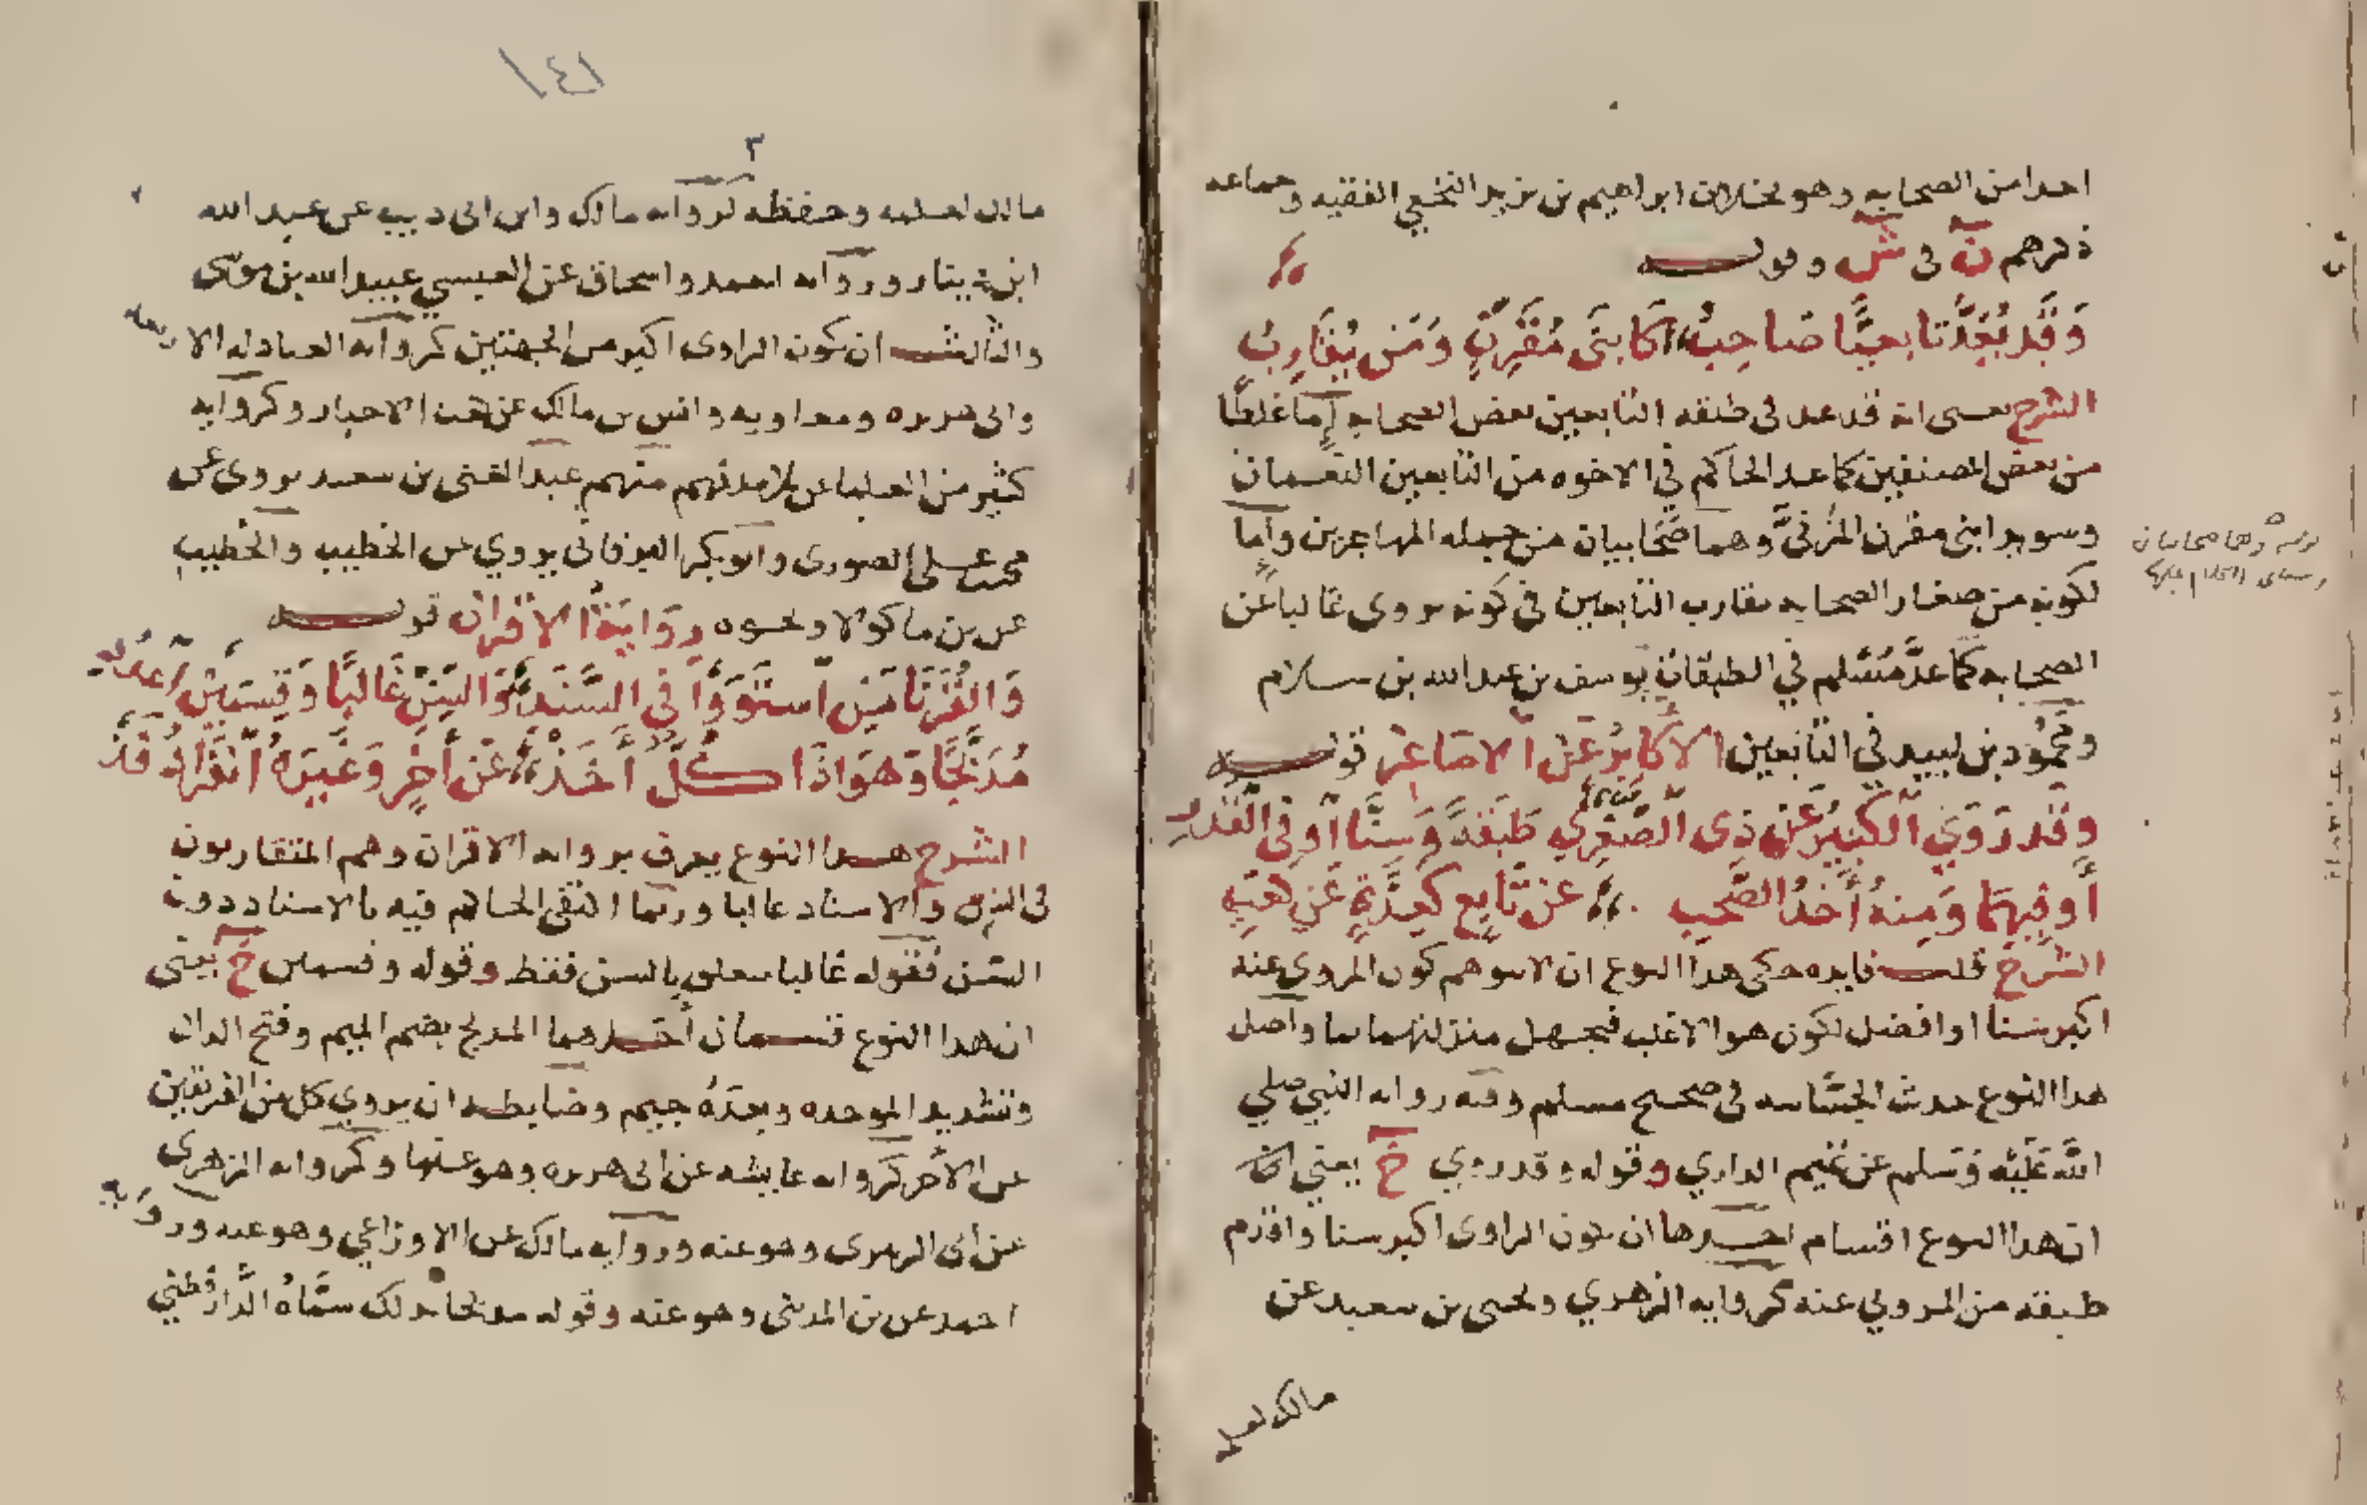 احدا من الصحابه وهو بخلاف ابراهيم بن يزيد النخعي الفقيه وجماعه
ذكرهم ن في ش وقوله
وَقَد يُعَدُّ تابعيًّا صَاحِبُ كابنَي مُقَرِّنٍ وَمَن يُقَارِبُ
الشرح يعني انه قد عد في طبقه التابعين بعض الصحابه إما غلطًا
من بعض المصنفين كما عد الحاكم في الاخوه من التابعين النعمان
وسويد ابنى مقرن المُزنيَّ وهما صحابيان من جمله المهاجرين وإما
لكونه من صغار الصحابه مقارب التابعين في كونه يروى غالبا عن
الصحابه كما عدَّ مُسْلم في الطبقات يوسف بن عبد الله بن سلام
ومحمُود بن لبيد في التابعين الاكَابِرُ عَن الاصَاغر قوله
وقد رَوَى الكبيرُ عن ذى الصُّغرِ طَبَقَةً وَسِنًّا أو في القدر
أَو فيهمَا وَمِنهُ أَخذُ الصَّحبِ عن تَابعٍ كعِدَّةٍ عَن كعبِ
الشرح قلت فايده حكى هدا النوع ان لا يتوهم كون المروى عنه
اكبر سنا او افضل لكون هو الاغلب فيجهل منزلتهما واصل
هدا النوع حديث الجسّاسه في صحيح مسلم وفيه روايه النبي صلي
اللّه عَلَيْه وَسلم عن تميم الداري وقوله وقد روي خ يعني
ان هدا النوع اقسام احدها ان يكون الراوى اكبر سنا واقدم
طبقه من المروي عنه كروايه الزهري ويحيى بن سعيد عن
مالك لعلـ
١٤١
٣
مالك لعلمه وحفظه كروايه مالك وابن ابى ديب عن عبد الله
ابن دينار وروايه احمد واسحاق عن العبسي عبيد الله بن موسى
والثالث ان يكون الراوى اكبر من الجهتين كروايه العبادله الاربعه
وابى هريره ومعاويه وانس بن مالك عن كعب الاحبار وكروايه
كثير من العلما عن تلامدتهم منهم عبد الغنى بن سعيد يروى عن
محمد بن على الصورى وابو بكر البرقاني يروي عن الخطيب والخطيب
عن بن ماكولا ونحوه رِوَايَةُ الاقرَان قوله
وَالقُرَنَا مَن استَوَوا في السَّندِ وَالسّنِّ غَالبًا وَقِسمَينِ اعدُد
مُدَبَّجًا وَهوَ اذَا كُلٌّ أَخَذْ عَن آخرٍ وَغَيرَهُ انفرَادُ فَذْ
الشرح هدا النوع يعرف بروايه الاقران وهم المتقاربون
في السن والاسناد غالبا وربما اكتفى الحاكم فيه بالاسناد دون
السّن فقوله غالبا يتعلق بالسن فقط وقوله وقسمين خ يعنى
ان هدا النوع قسمان أحدهما المدبج بضم الميم وفتح الدال
وتشديد الموحده وبعدَهُ جيم وضابطه ان يروي كل من الفريقين
عن الاخر كروايه عايشه عن ابى هريره وهو عنها وكروايه الزهرى
عن ابى الزبير وهو عنه وروايه مالك عن الاوزاعي وهو عنه وروَايه
احمد عن بن المدينى وهو عنه وقوله مدبجا بدلك سمَّاهُ الدَّارقُطنيّ